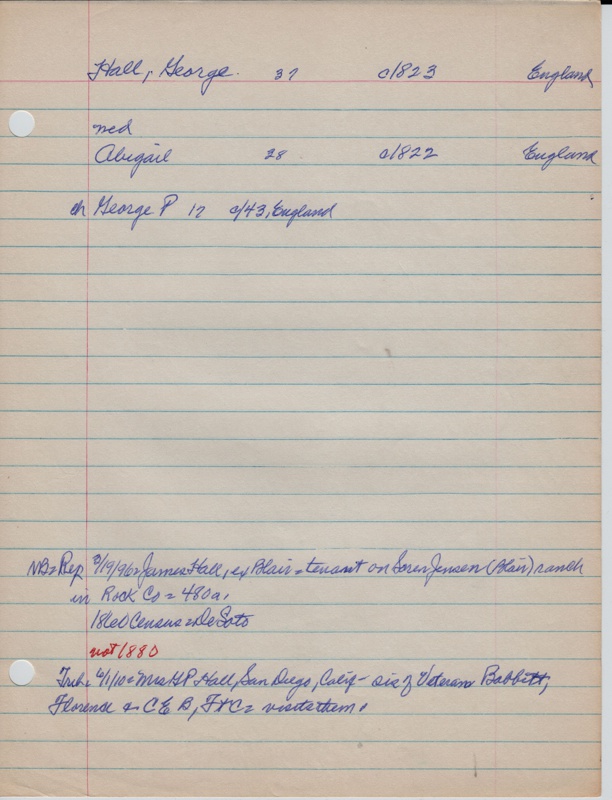 Hall, George. 37 c1823 England
md
Abigail 28 c1822 England
ch George P 17 c/43, England
NB=Rep 3/19/96=James Hall, ex Blair=tenant on Soren Jensen (Blair) ranch
in Rock Co = 480a.
1860 Census=DeSoto
not 1880
Trib= 6/1/10=Mrs G.P. Hall, San Diego, Calif- sis of Veteran Babbitt,
Florence & C E B, F+C= visits them.